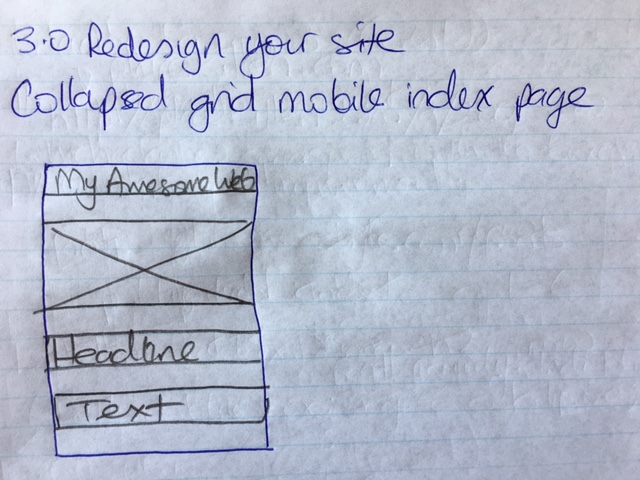 3.0 Redesign your site
Collapsed grid mobile index page
My Awesome Web
Headline
Text